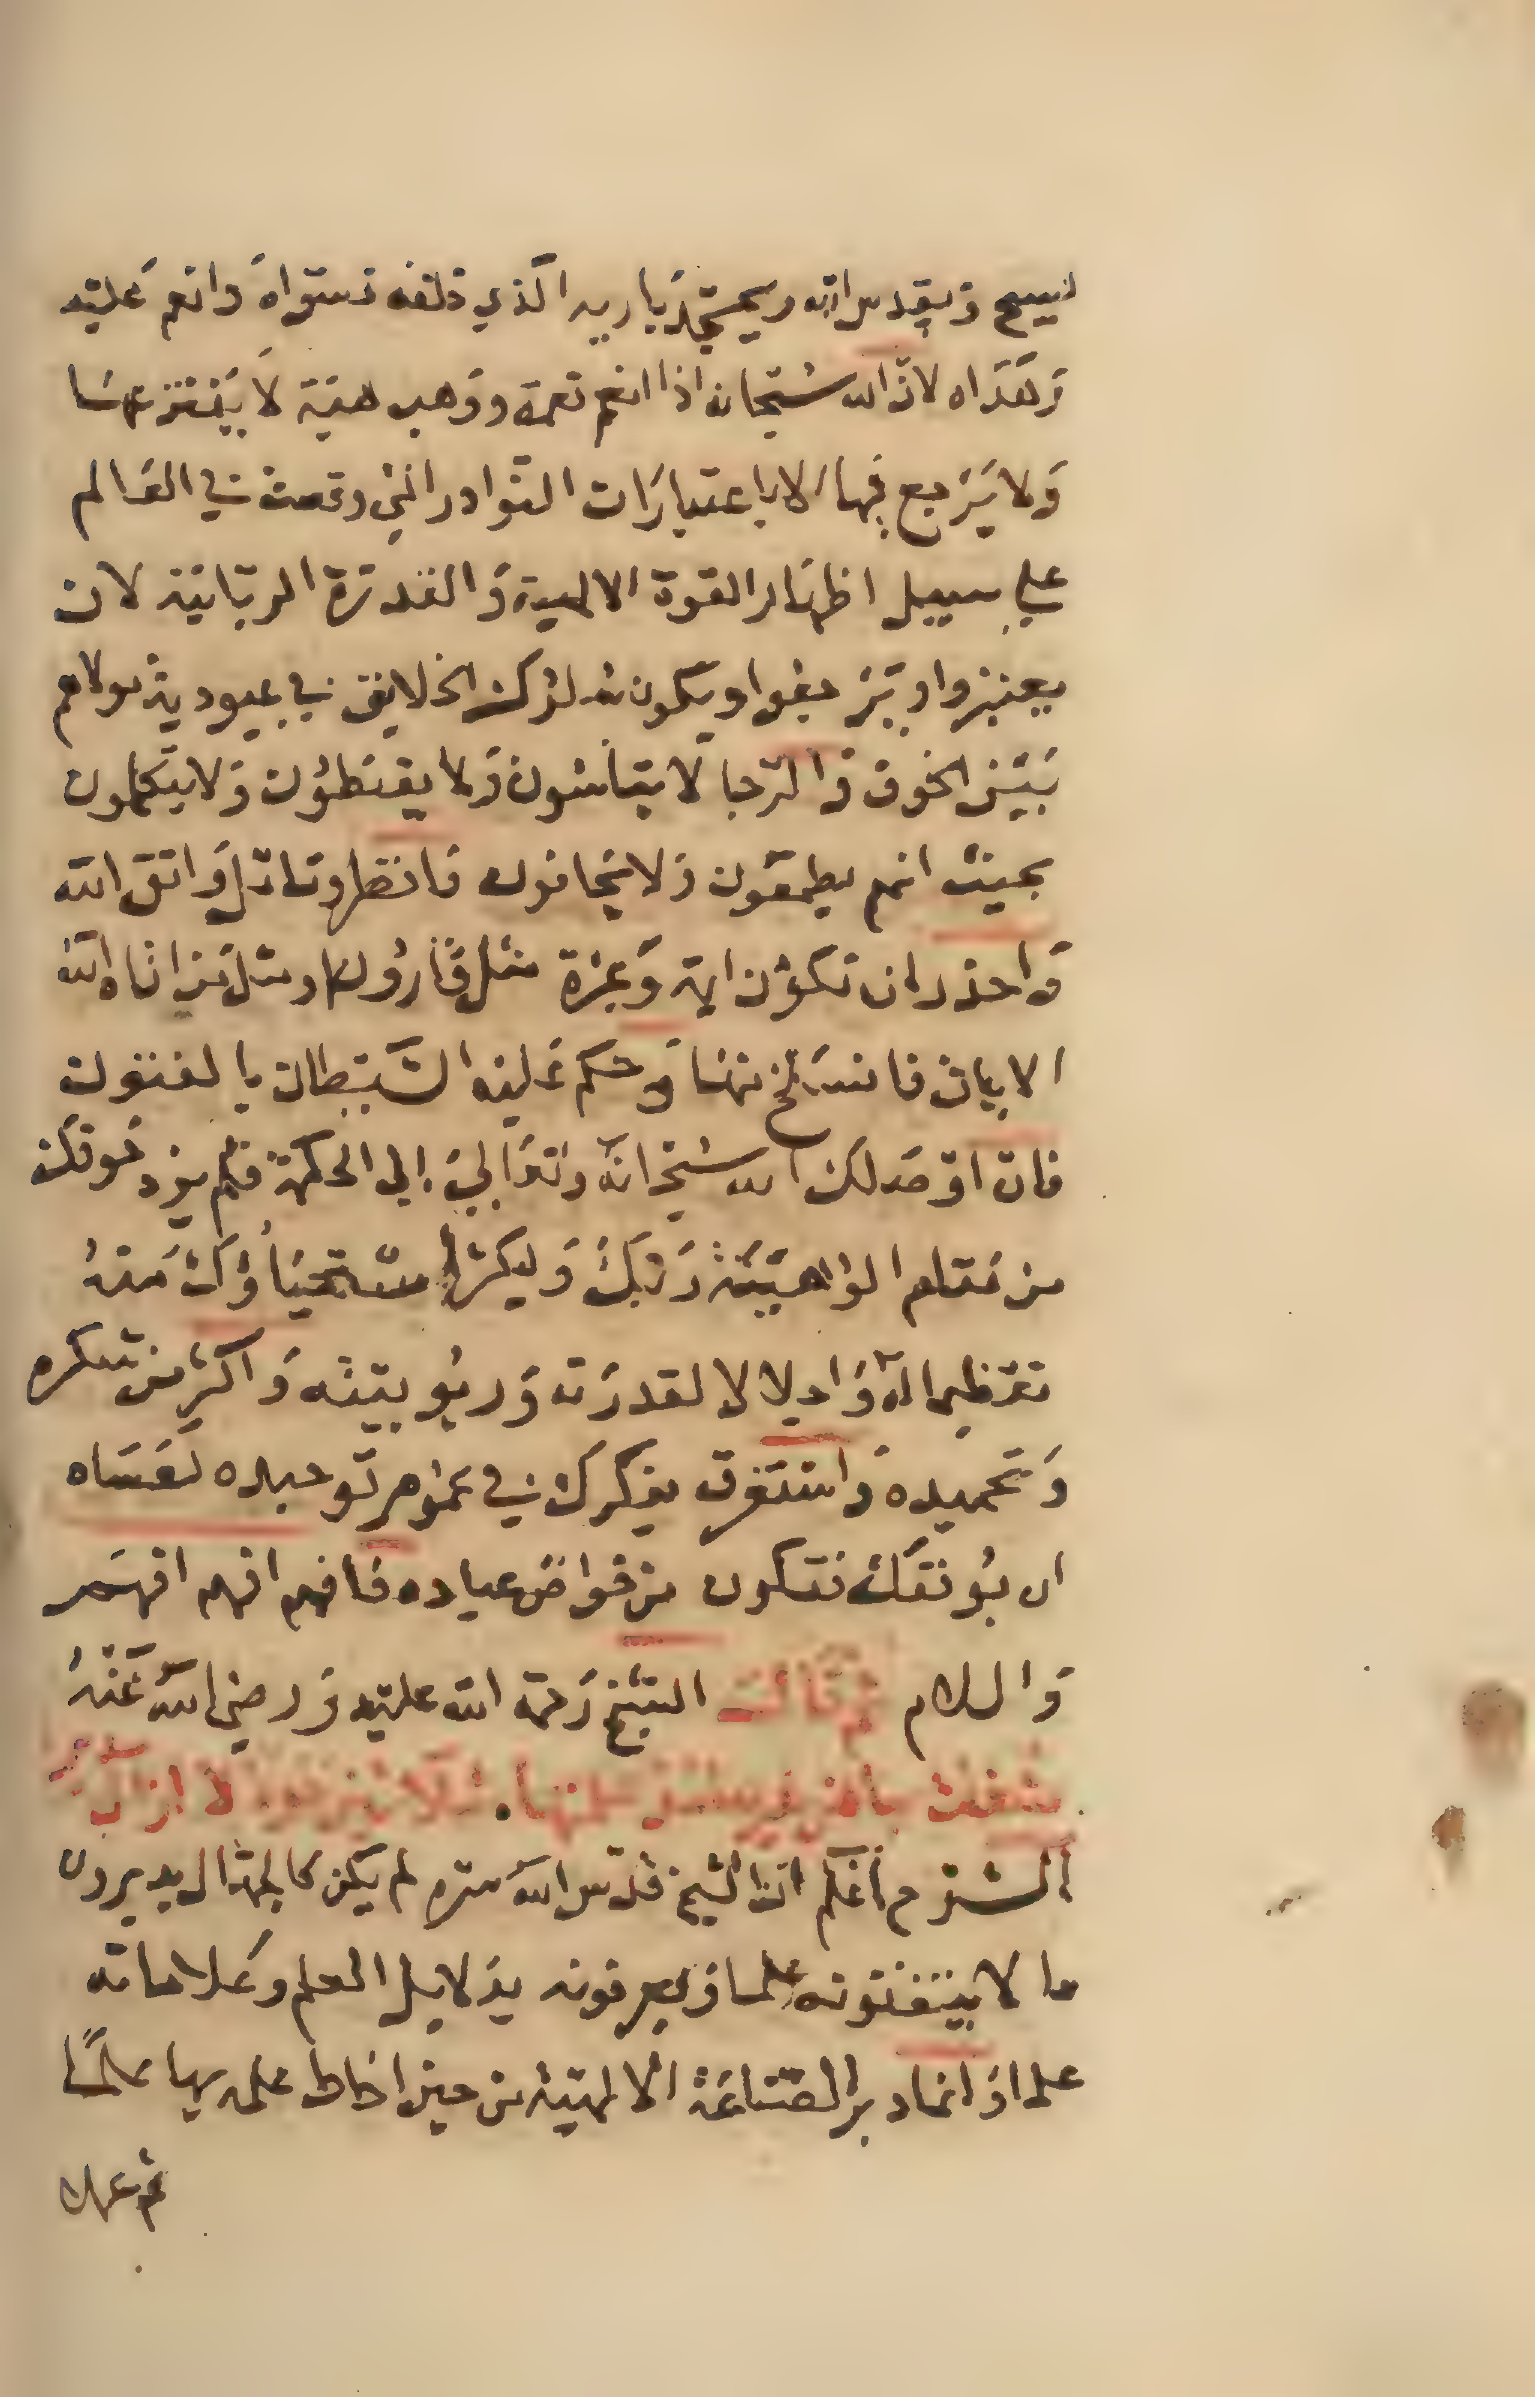 يسبح ويقدس الله ويمجد باريه الذي خلقه فسواه وانعم عليه
وهداه لان الله سبحانه اذا انعم نعمة ووهب هبة لا ينتزعها
ولا يرجع فيها الا باعتبارات النوادر التي وقعت في العالم
علي سبيل اظهار القوة الالهية والقدرة الربانية لان
يعتبروا ويرجعوا ويكون سلوك الخلايق في عبودية مولاهم
بين الخوف والرجا لا يياسون ولا يقنطون ولا يتكلون
بحيث انهم يطمعون ولا يخافون فانظر وتامل واتق الله
واحذر ان تكون اية وعبرة مثل قارون ومثل من اتاه الله
الايات فانسلخ منها وحكم عليه الشيطان بالفتون
فان اوصلك الله سبحانه وتعالي الي الحكمة فلم يزد خوفك
من مقام الواهبية ربك وليكثر استحياؤك منه
تعظيما له واجلالا لقدرته وربوبيته واكثر من شكره
وتحميده واستغرق بفكرك في بحوم توحيده لعساه
ان يوفقك فتكون من خواص عباده فافهم افهم افهم
والسلام ثم قال الشيخ رحمة الله عليه ورضي الله عنه
الشرح اعلم ان الشيخ قدس الله سره لم يكن كالجهال يديرون
ما لا يتقنونه علما ويعرفونه بدلايل العلم وعلاماته
علما وانما دبر الصناعة الالهية من حين احاط علمه بها علما
ثم عملا